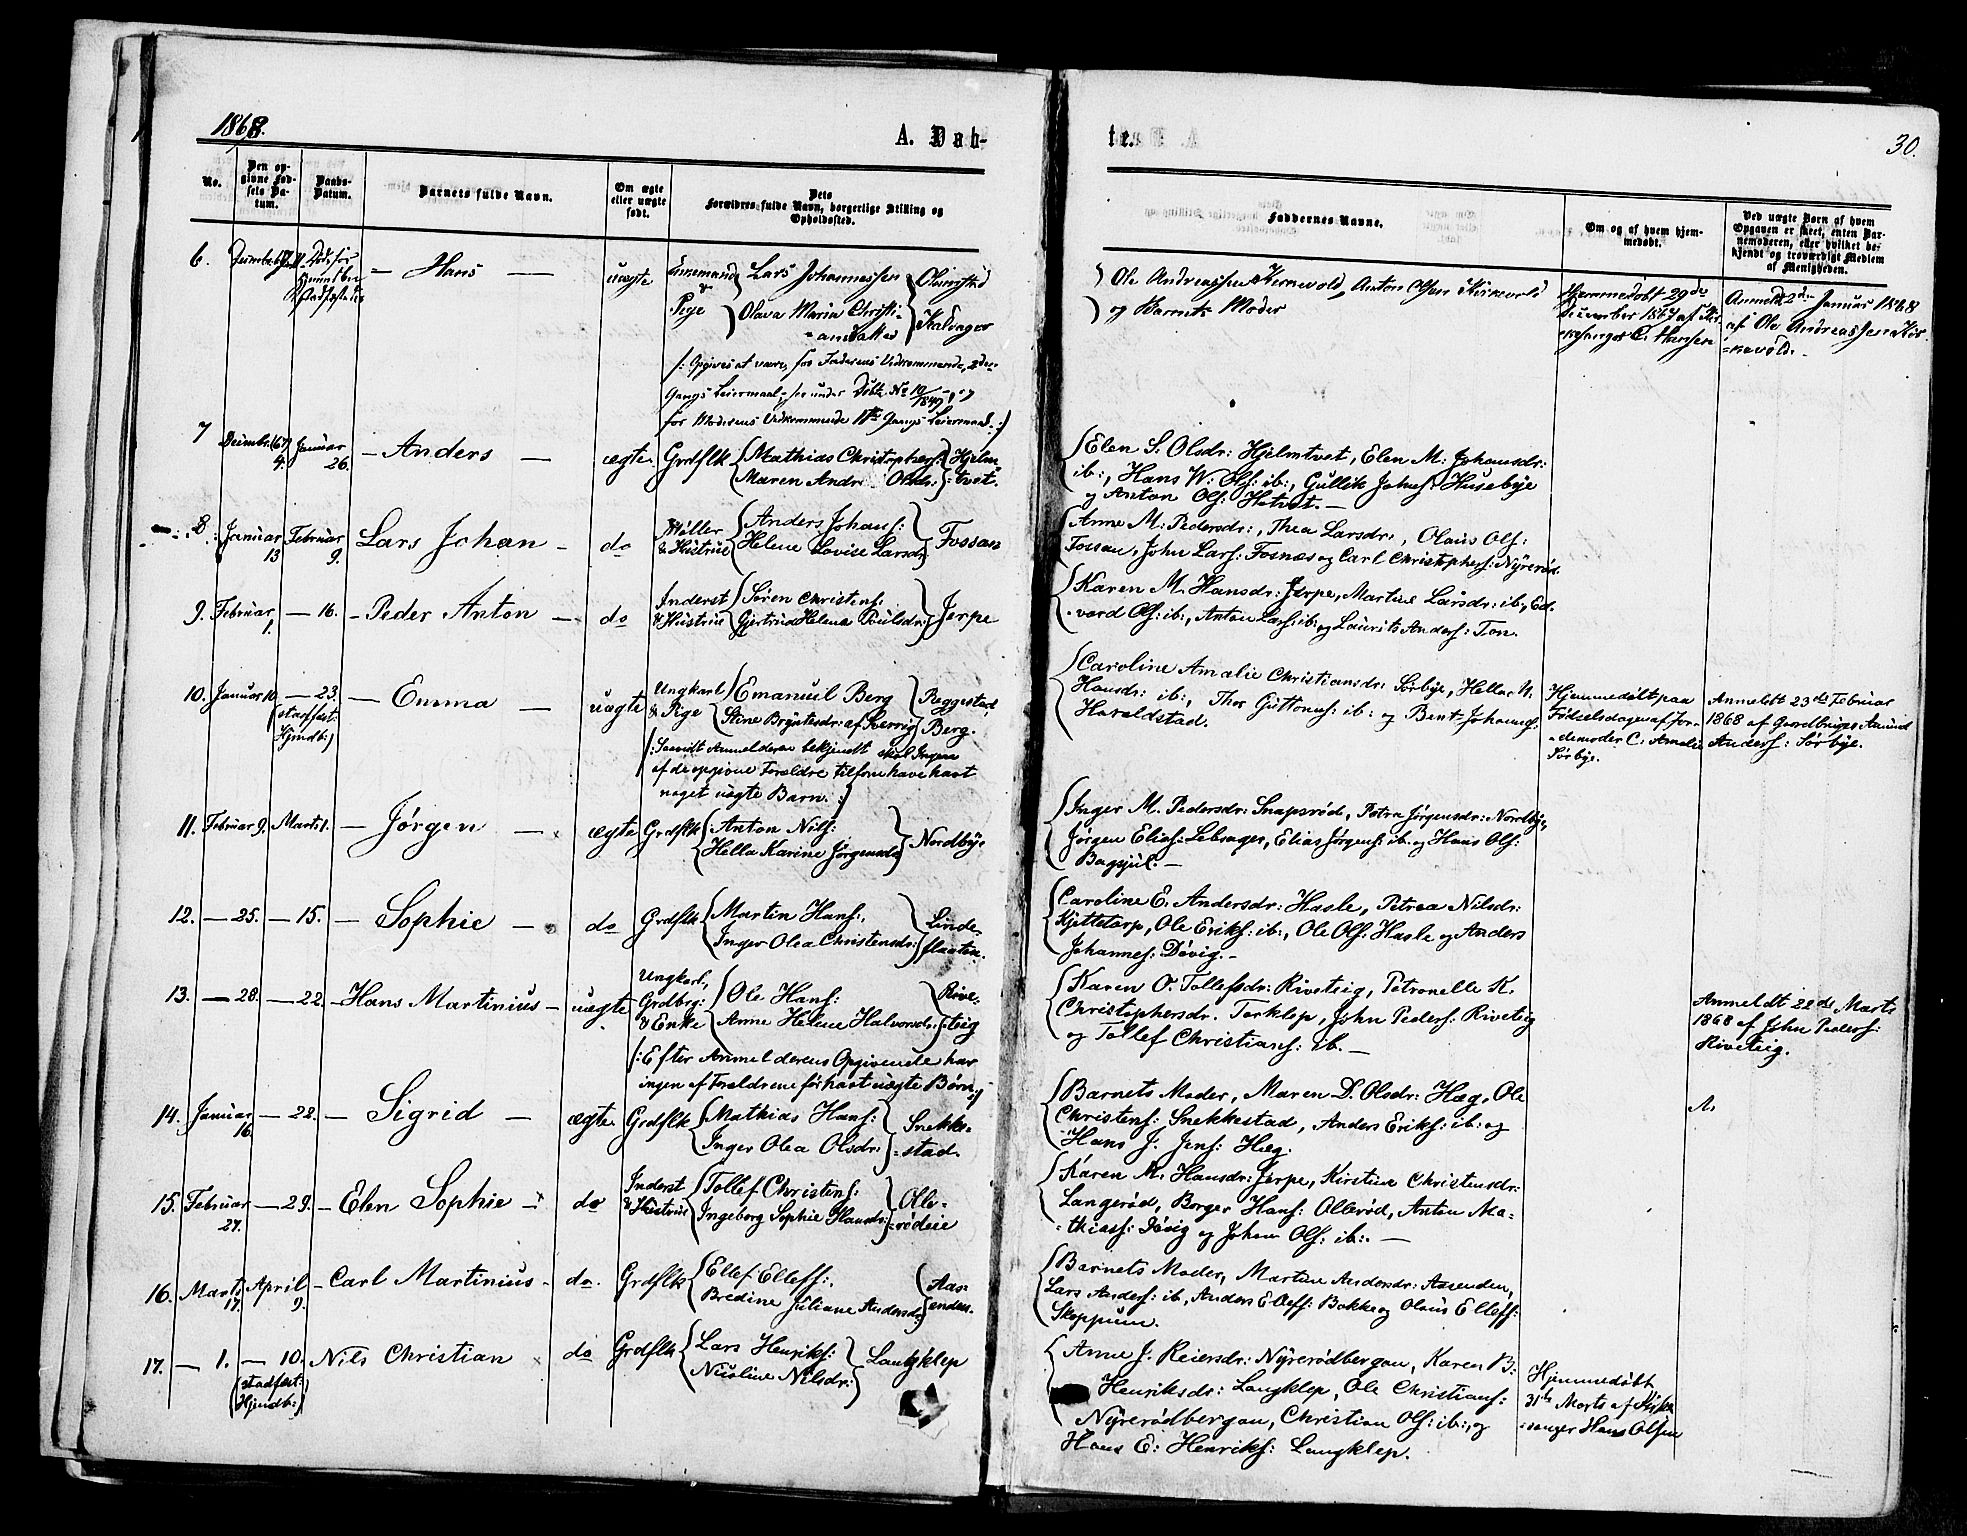 1868.
A. Dab-
te.
30.
No.
Den op-
givne Fød-
sels Da-
tum.
Daabs-
Datum.
Barnets fulde Navn.
Om ægte
eller uægte
født.
Dets
Forældres fulde Navn, borgerlige Stilling og
Opholdssted.
Faddernes Navne.
Om og af hvem hjem-
medøbt.
Ved uægte Børn af hvem
Opgaven er skeet, enten Bar-
nemoderen, eller hvilket be-
kjendt og troværdigt Medlem
af Menigheden.
6. — Hans — uægte
Enkemand & Pige
Lars Johannessen
Olava Maria Christi-
=ansdatter
/: Opgives at være, for Faderens Vedkommende, 2den
Gangs Leiermaal,
for Moderens Vedkommende 1ste Gangs Leiermaal :/
Ole Andreassen Kirkevold, Anton Olsen Kirkevold
og Barnets Moder
Hjemmedøbt 29de
December 1867 af Kir-
kesanger C. Hansen
Anmeldt 2den Januar 1868
af Ole Andreassen Kir-
=kevold. -
7 Decembr. (67) 4. Januar 26. — Anders — ægte. Grdflk
Mathias Christophers:
Maren Andr: Olsdr:
Hjelm-
:tvet.
Elen S. Olsdr: Hjelmtvet, Elen M: Johansdr:
ib:, Hans W: Ols: ib:, Gullik Johns: Husebye
og Anton Ols: Hotvet. —
8. Januar 13 Februar 9. Lars Johan - do
Møller & Hustrue
Anders Johans:
Helene Lovise Larsdr:
Fossan
Anne M: Pedersdr:, Thea Larsdr:, Olaus Ols:
Fossan, John Lars: Fosnæs og Carl Christophers: Nyrerød.
9. Februar 1. — 16. - Peder Anton — do
Inderst & Hustrue
Søren Christens:
Gjertrud Helene Poulsdr:
Jerpe
Karen M. Hansdr: Jerpe, Martine Larsdr: ib:, Ed-
vard Ols: ib:, Anton Lars: ib: og Laurits Anders: Ton.
10. Januar 10. — 23. (stadfæst: Hjmdb:) — Emma — uægte
Ungkarl & Pige
Emanuel Berg
Stine Bryntesdr: af Kerrig
Reggestad,
Berg.
/: Saavidt Anmelderen bekjendt skal Ingen
af de opgivne Forældre tilforn have havt
noget uægte Barn. :/
Caroline Amalie Christiansdr: Sørbye, Hella N.
Hansdr: ib:, Thor Guttorms: ib: og Bent Johanns:
Haraldstad.
Hjemmedøbt paa
Fødselsdagen af Jor-
-demoder C: Amalie
Sørbye.
Anmeldt 23de Februar
1868 af Gaardbruger Amund
Anders: Sørbye.
11. Februar 9. Marts 1. — Jørgen — ægte Grdflk
Anton Nils:
Hella Karine Jørgensdr
Nordbye
Inger M. Pedersdr: Snapsrød, Petra Jørgensdr: Nordbye,
Jørgen Elias: Lebsager, Elias Jørgens: ib: og Hans Ols:
Bogsjul. —
12. — 25. — 15. — Sophie — do Grdflk
Martin Hans:,
Inger Olea Christensdr:
Linde-
flaaten.
Caroline E. Andersdr: Hasle, Petrea Nilsdr:
Kjettetorp, Ole Eriks: ib:, Ole Ols: Hasle og Anders
Johannes: Døvig. —
13. — 28. — 22. — Hans Martinius — uægte
Ungkarl, Grdbrg: & Enke
Ole Hans:
Anne Helene Halvorsdr:
Rive-
:teig
/: Efter Anmelderens Opgivende har
ingen af Forældrene før havt uægte Børn :/
Karen O. Tollefsdr: Riveteig, Petronelle K.
Christophersdr. Torklep, John Peders: Riveteig
og Tollef Christians: ib. —
Anmeldt 22de Marts
1868 af John Peders:
Riveteig.
14. Januar 16. — 28. — Sigrid — ægte. Grdflk
Mathias Hans:
Inger Olea Olsdr:
Snekke-
=stad.
Barnets Moder, Maren D. Olsdr: Hæg, Ole
Christens: Snekkestad, Anders Eriks: ib: og
Hans J. Jens: Hæg.
15. Februar 27. — 29. — Elen Sophie — do
Inderst & Hustrue
Tollef Christens:
Ingeborg Sophie Hansdr:
Olle-
rødeie
Karen M. Hansdr: Jerpe, Kirstine Christensdr:
Langerød, Borger Hans: Ollerød, Anton Ma-
-thiass: Døvig og Johan Ols: ib:. —
16. Marts 17. April 9. - Carl Martinius - do. Grdflk
Ellef Elleffs:,
Bredine Juliane Andersdr
Aas-
enden.
Barnets Moder, Martine Andersdr: Aasenden,
Lars Anders: ib, Anders Elleff: Bakke og Olaus Elleff:
Skoppum.
17. — 1. — 10. (stadfæst: Hjmdb:) Nils Christian do Grdflk
Lars Henriks:
Nicoline Nilsdr:
Langklep
Anne J. Reiersdr: Nyrerødbergan, Karen B:
Henriksdr: Langklep, Ole Christians:
Nyrerødbergan, Christian Ols: ib:, og
Hans E: Henriks: Langklep.
Hjemmedøbt
31te Marts af Kirke
:sanger Hans Olsen